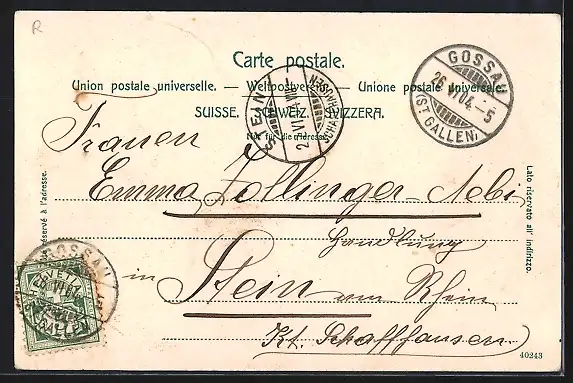 R
Carte postale.
Union postale universelle. — Weltpostverein. — Unione postale universale.
SUISSE. SCHWEIZ. SVIZZERA.
Nur für die Adresse.
STEIN
SCHAFFHAUSEN
GOSSAU
26.VI.04.-5
(ST GALLEN)
Frauen
Emma Zollinger-Aebi
Handlung
in Stein am Rhein
Kt. Schaffhausen
réservé à l'adresse.
Lato riservato all' indirizzo.
GOSSAU
40243